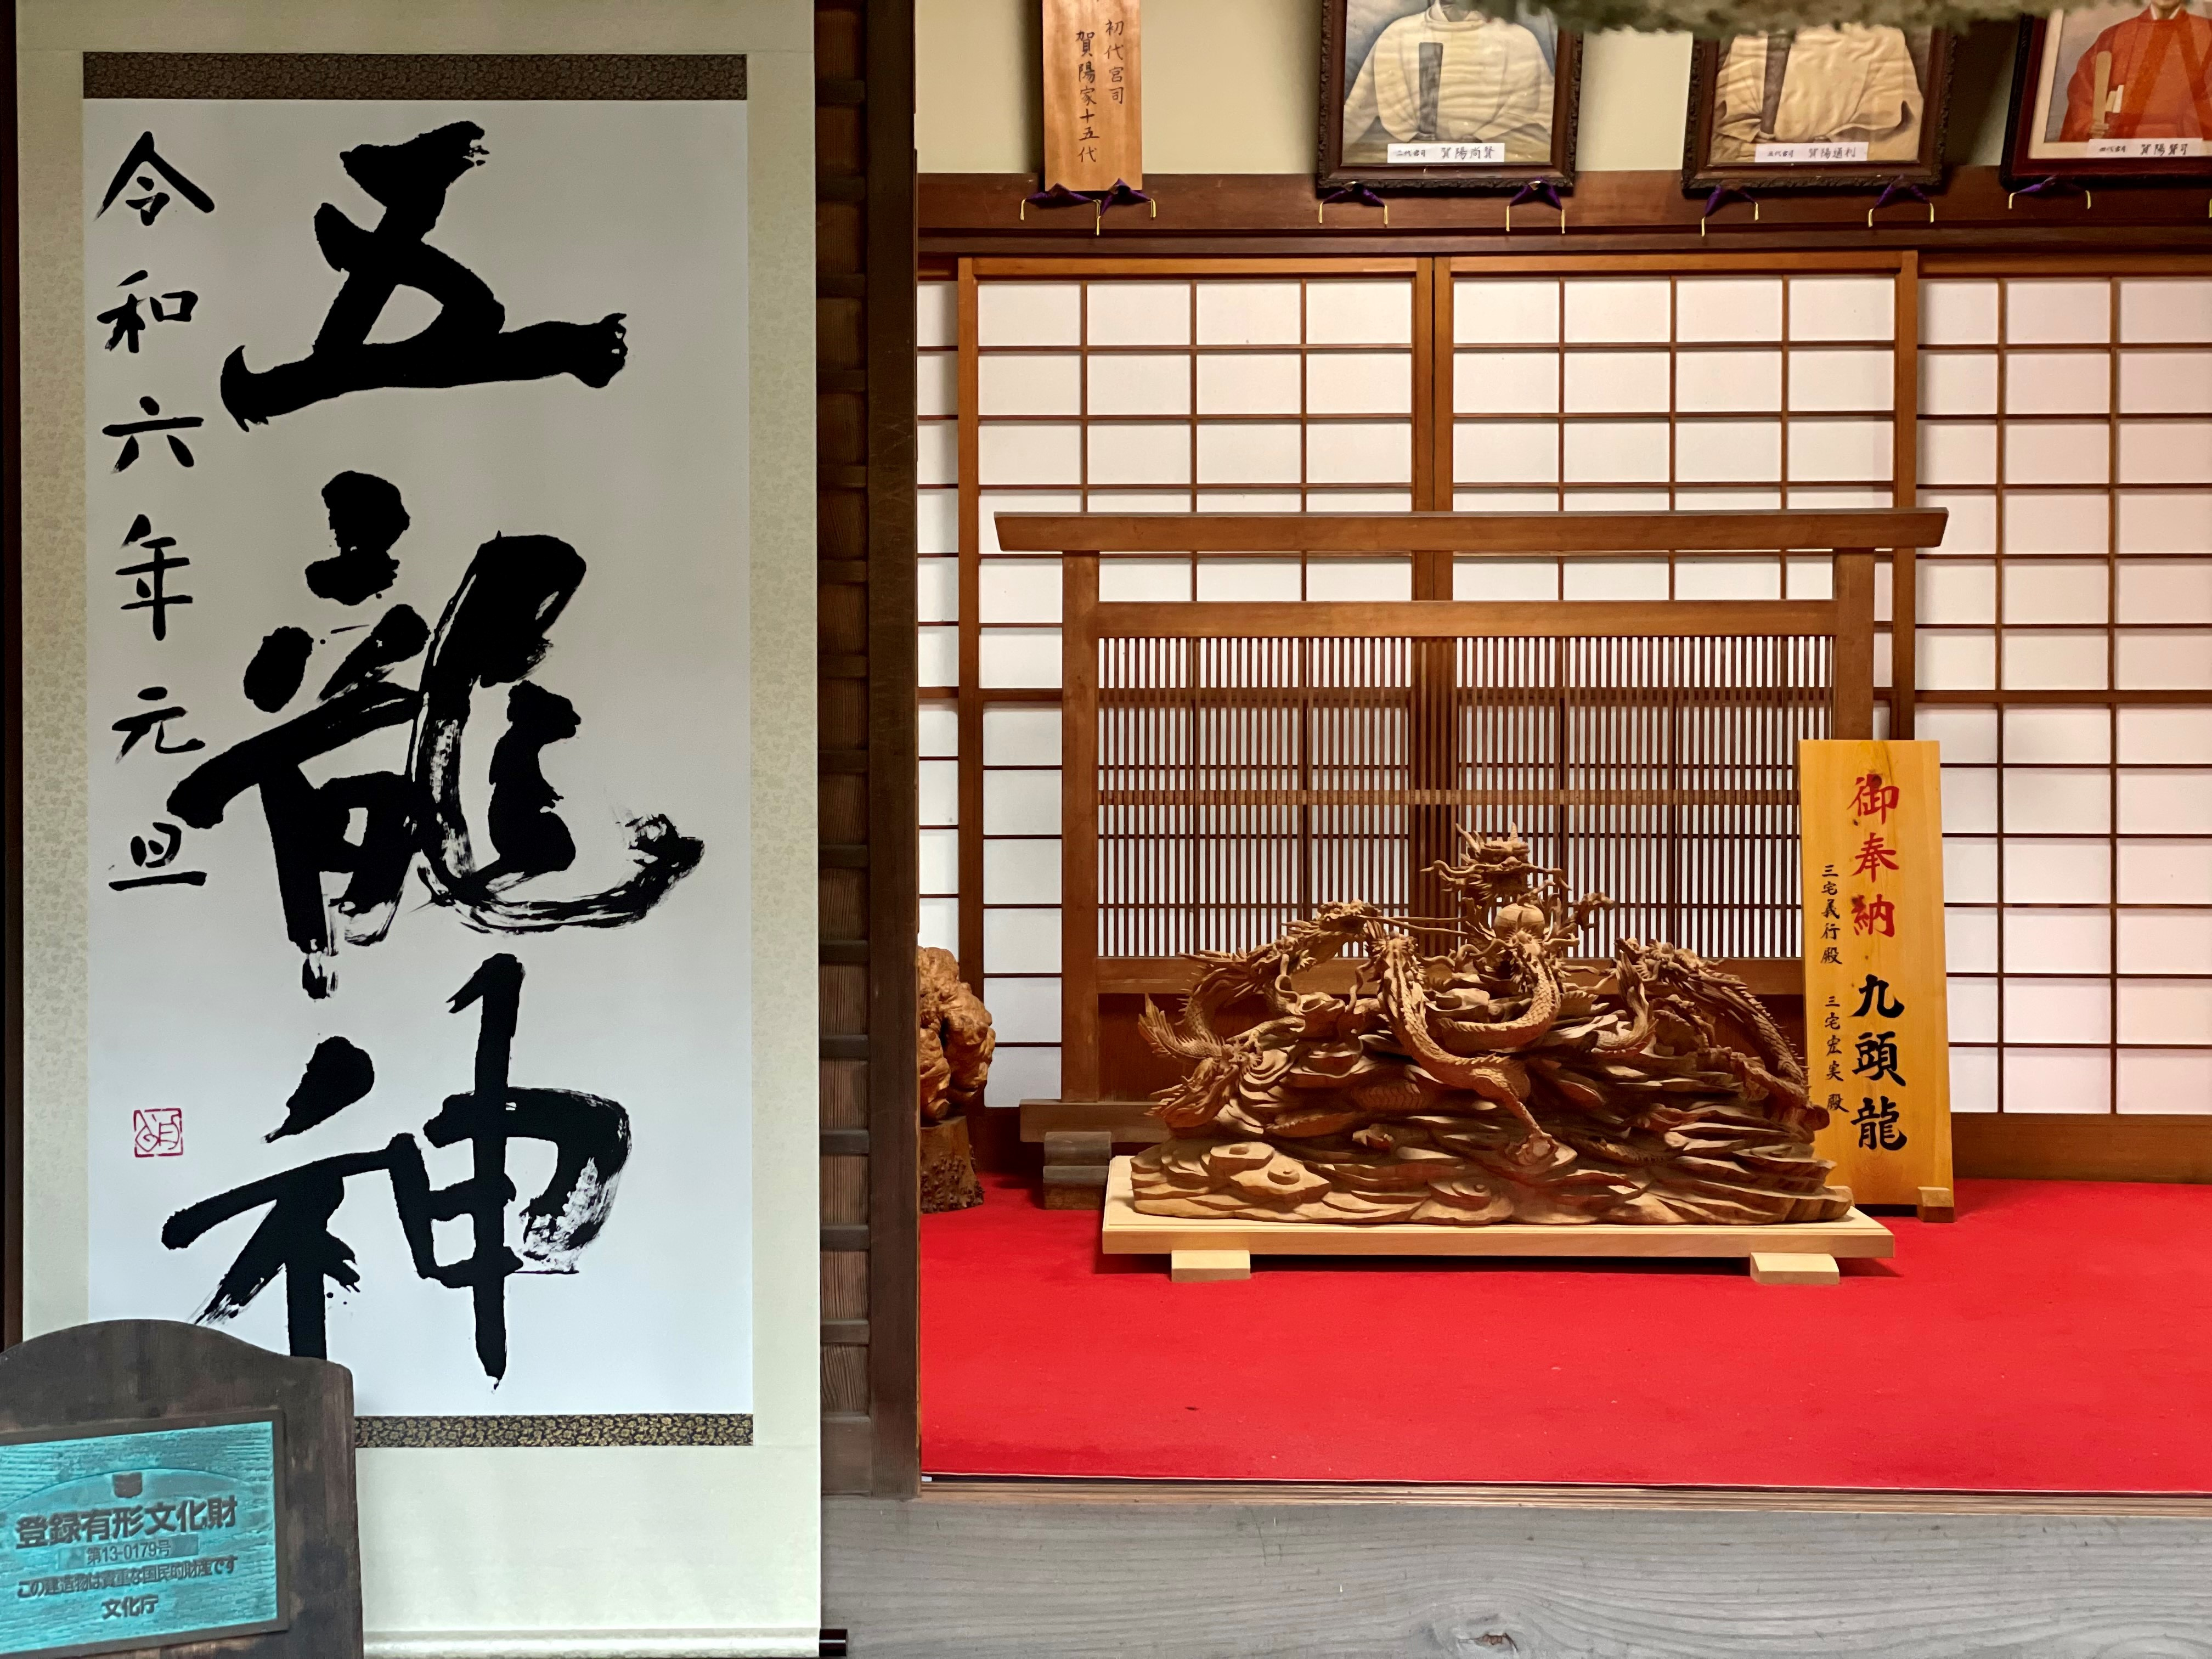 五龍神
令和六年元旦
登録有形文化財
第13-0179号
この建造物は貴重な国民的財産です
文化庁
初代宮司
賀陽家十五代
二代宮司 賀陽尚賢
賀陽通利
四代宮司 賀陽賢司
御奉納 九頭龍
三宅義行殿 三宅宏実殿